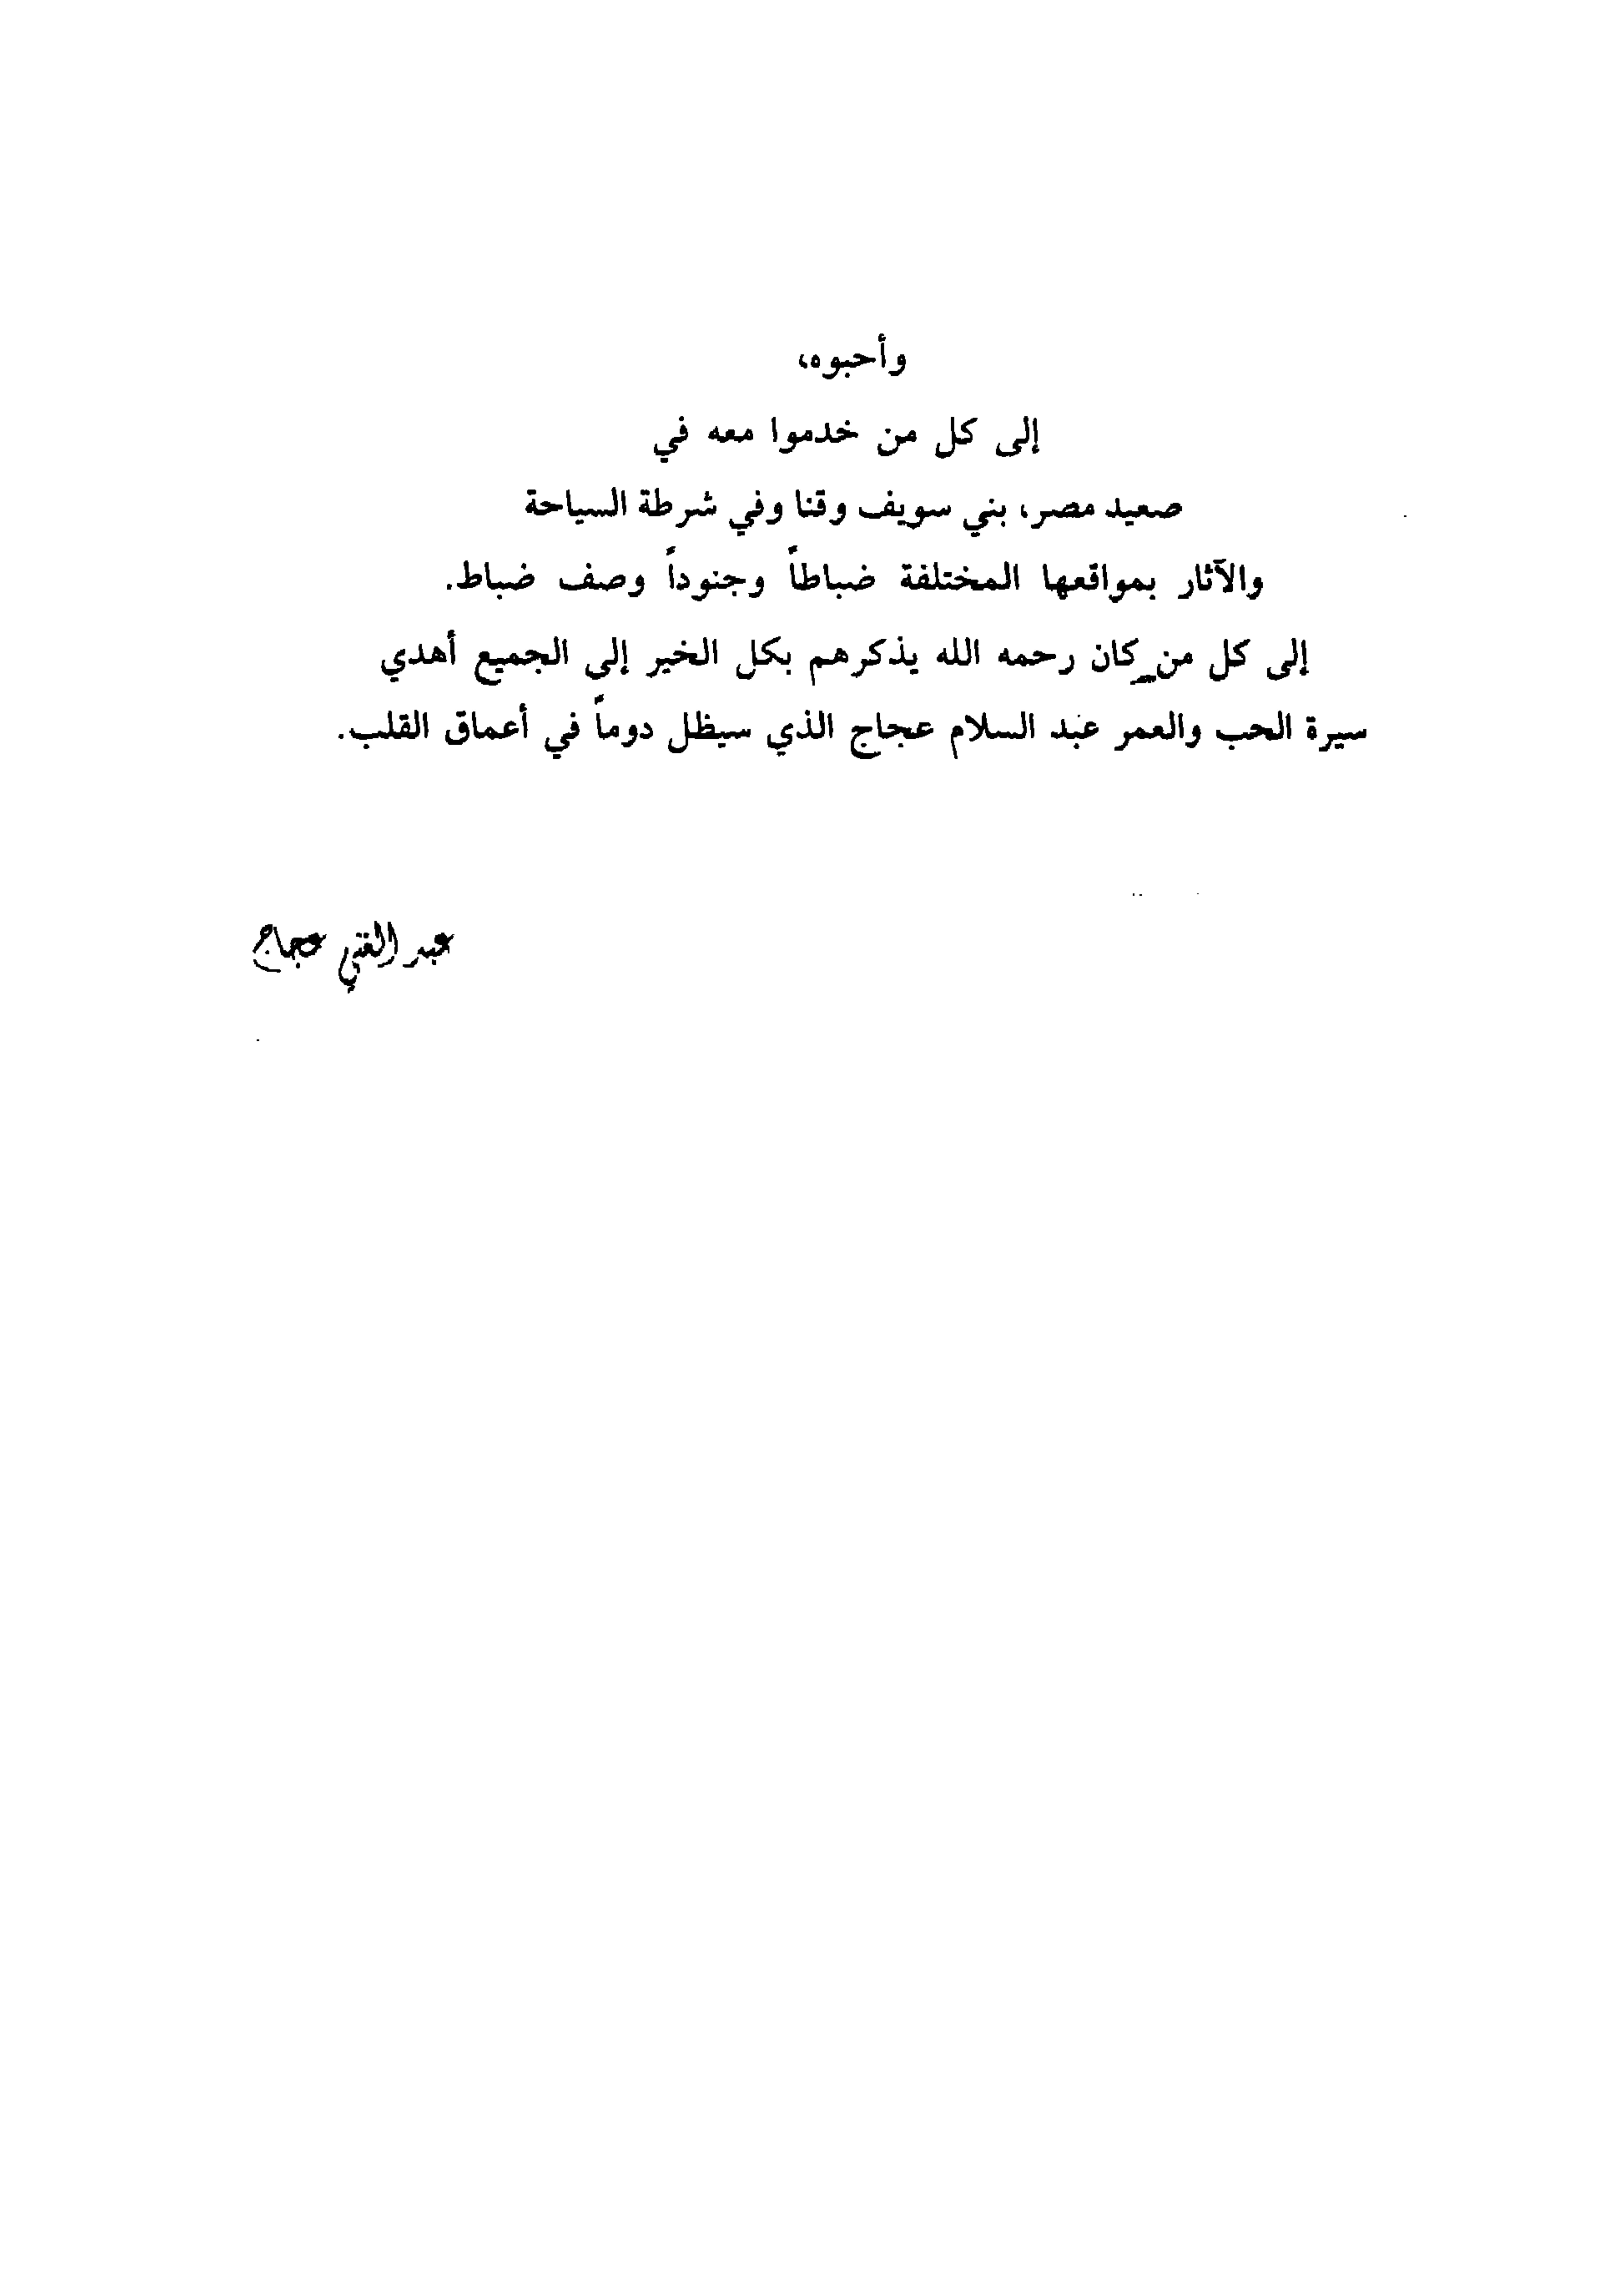 وأحبوه،
إلى كل من خدموا معه في
صعيد مصر، بني سويف وقنا وفي شرطة السياحة
والآثار بمواقعها المختلفة ضباطاً وجنوداً وصف ضباط.
إلى كل من كان رحمه الله يذكرهم بكل الخير إلى الجميع أهدي
سيرة الحب والعمر عبد السلام عجاج الذي سيظل دوماً في أعماق القلب.
عبد الغني عجاج